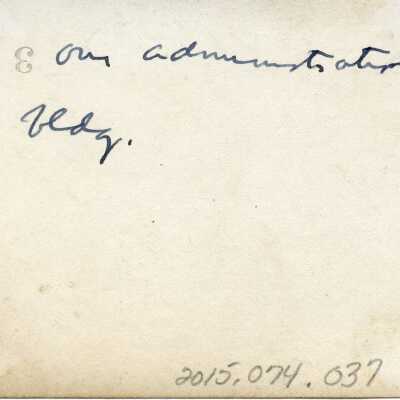 our administration
bldg.
2015.074.037